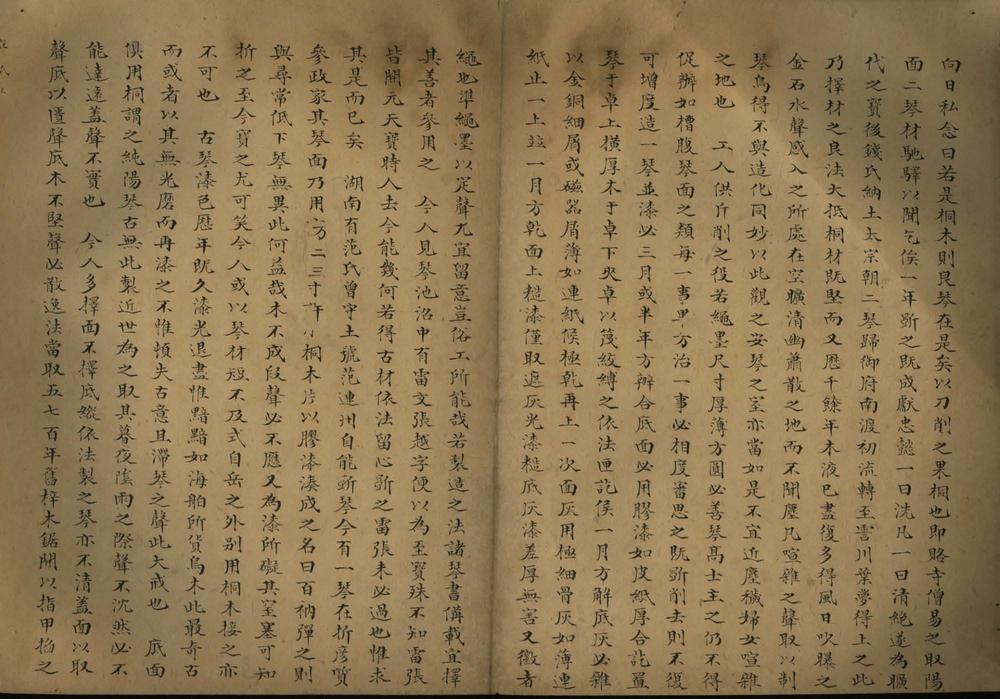 向日私念曰若是桐木則良琴在是矣以刀削之果桐也即賂寺僧易之取陽
面二琴材馳驛以聞乞俟一年斲之既成獻忠懿一曰洗凡一曰清絶遂為曠
代之寶後錢氏納土太宗朝二琴歸御府南渡初流轉至霅川葉夢得上之此
乃擇材之良法大抵桐材既堅而又歷千餘年木液已盡復多得風日吹曝之
金石水聲感入之所處在空曠清幽蕭散之地而不聞塵凡喧雜之聲取以制
琴烏得不與造化同妙以此觀之安琴之室亦當如是不宜近塵穢婦女喧雜
之地也 工人供斤削之役若繩墨尺寸厚薄方圓必善琴高士主之仍不得
促辦如槽腹琴面之類每一事畢方治一事必相度審思之既斲削去則不復
可增度造一琴並漆必三月或半年方辦合底面必用膠漆如皮紙厚合訖置
琴于卓上横厚木于卓下夾卓以篾絞縛之依法匣訖俟一月方解底灰必雜
以金銅細屑或磁器屑薄如連紙候極乾再上一次面灰用極細骨灰如薄連
紙止一上並一月方乾面上糙漆僅取遮灰光漆糙底灰漆差厚無害又徽者
繩也準繩墨以定聲尤宜留意豈俗工所能哉若製造之法諸琴書備載宜擇
其善者參用之 今人見琴池沼中有雷文張越字便以為至寶殊不知雷張
皆開元天寶時人去今能幾何若得古材依法留心斲之雷張未必過也惟求
其是而已矣 湖南有范氏曾守土號范連州自能斲琴今有一琴在折彦質
參政家其琴面乃用方二三寸許小桐木片以膠漆湊成之名曰百衲彈之則
與尋常低下琴無異此何益哉木不成段聲必不應又為漆所礙其窒塞可知
折之至今寶之尤可笑今人或以琴材短不及式自岳之外别用桐木接之亦
不可也 古琴漆色歷年既久漆光退盡惟黯黯如海舶所貨烏木此最奇古
而或者以其無光磨而再漆之不惟頓失古意且滯琴之聲此大戒也 底面
俱用桐謂之純陽琴古無此製近世為之取其暮夜陰雨之際聲不沈然必不
能達遠蓋聲不實也 今人多擇面不擇底縱依法製之琴亦不清蓋面以取
聲底以匱聲底木不堅聲必散逸法當取五七百年舊梓木鋸開以指甲掐之